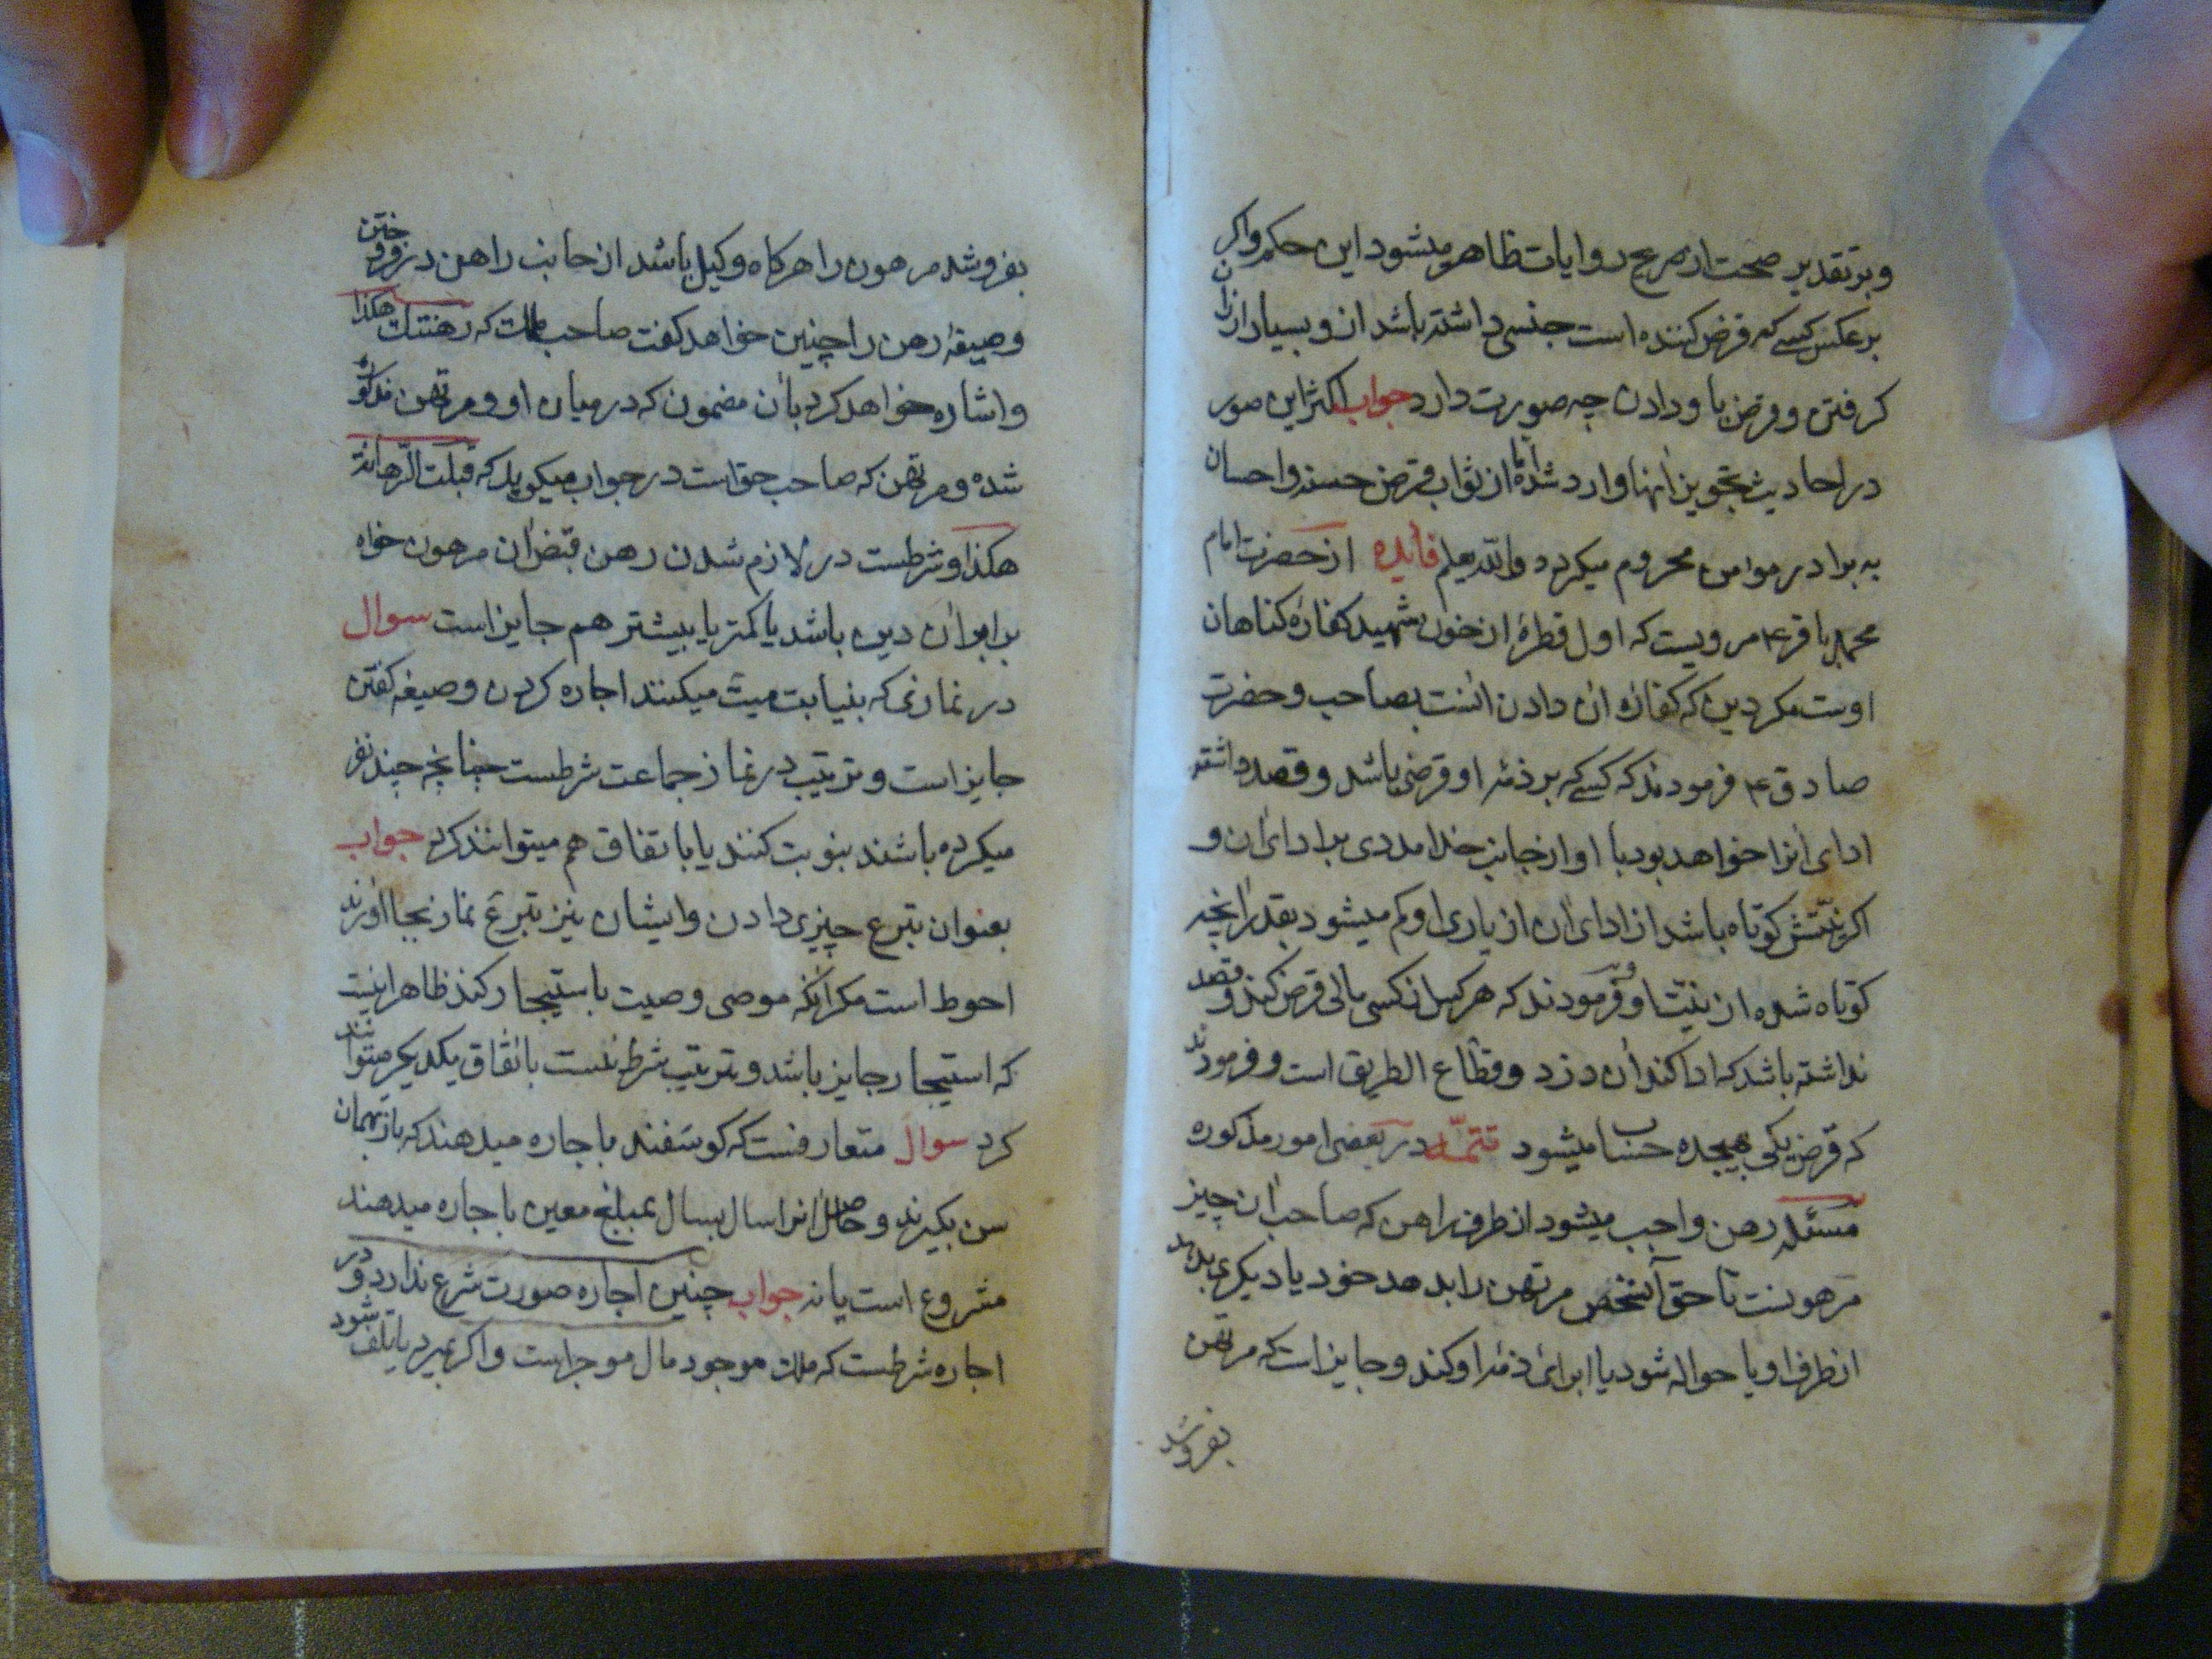 وبر تقدیر صحت از صریح روایات ظاهر میشود این حکم واکر
بر عکس کسی که قرض کننده است جنسی داشته باشد از و بسیار ارزان
کرفتن و قرض باو دادن چه صورت دارد جواب اکثر این صور
در احادیث تجویز انها وارد شده اما از ثواب قرض حسنه واحسان
به برادر مومن محروم میکردد والله یعلم فایده از حضرت امام
محمد باقر ع مرویست که اول قطرهٔ از خون شهید کفارهٔ کناهان
اوست مکر دین که کفارهٔ ان دادن انست بصاحب وحضرت
صادق ع فرمودند که کسی که بر ذمهٔ او قرضی باشد وقصد داشته
ادای انرا خواهد بود با او از جانب خدا مددی بر ادای ان و
اکر نیتش کوتاه باشد از ادای ان از یاری او کم میشود بقدر انچه
کوتاه شده از نیت او وفرمودند که هر کس از کسی مالی قرض کند وقصد
نداشته باشد که ادا کند ان دزد وقطاع الطریق است وفرمودند
که قرض یکی بهیجده حساب میشود تتمه در بعضی امور مذکوره
مسئله رهن واجب میشود از طرف راهن که صاحب ان چیز
مرهونست تا حق آنشخص مرتهن را بدهد خود یا دیکری بدهد
از طرف او یا حواله شود یا ابرائ ذمهٔ او کند وجایز است که مرتهن
بفروشد
بفروشد مرهون را هرکاه وکیل باشد از جانب راهن در فروختن
وصیغهٔ رهن را چنین خواهد کفت صاحب ملک که رهنتک هکذا
واشاره خواهد کرد بان مضمون که در میان او ومرتهن مذکور
شده ومرتهن که صاحب حق است در جواب میکوید که قبلت الرهانة
هکذا وشرطست در لازم شدن رهن قبض ان مرهون خواه
برابر ان دین باشد یا کمتر یا بیشتر هم جایز است سوال
در نمازی که بنیابت میت میکنند اجاره کردن وصیغه کفتن
جایز است وترتیب در نماز جماعت شرطست چنانچه چند نفر
میکرده باشند بنوبت کنند یا باتفاق هم میتوانند کرد جواب
بعنوان تبرع چیزی دادن وایشان نیز تبرع نماز بجا اورند
احوط است مکر انکه موصی وصیت باستیجار کند ظاهرا اینست
که استیجار جایز باشد وترتیب شرط نیست باتفاق یکدیکر میتوانند
کرد سوال متعارفست که کوسفند باجاره میدهند که باز بهمان
سن بکیرند وحاصل انرا سال بسال بمبلغ معین باجاره میدهند
مشروع است یا نه جواب چنین اجاره صورت شرع ندارد ودر
اجاره شرطست که ملک موجود مال موجر است واکر بمیرد یا تلف شود